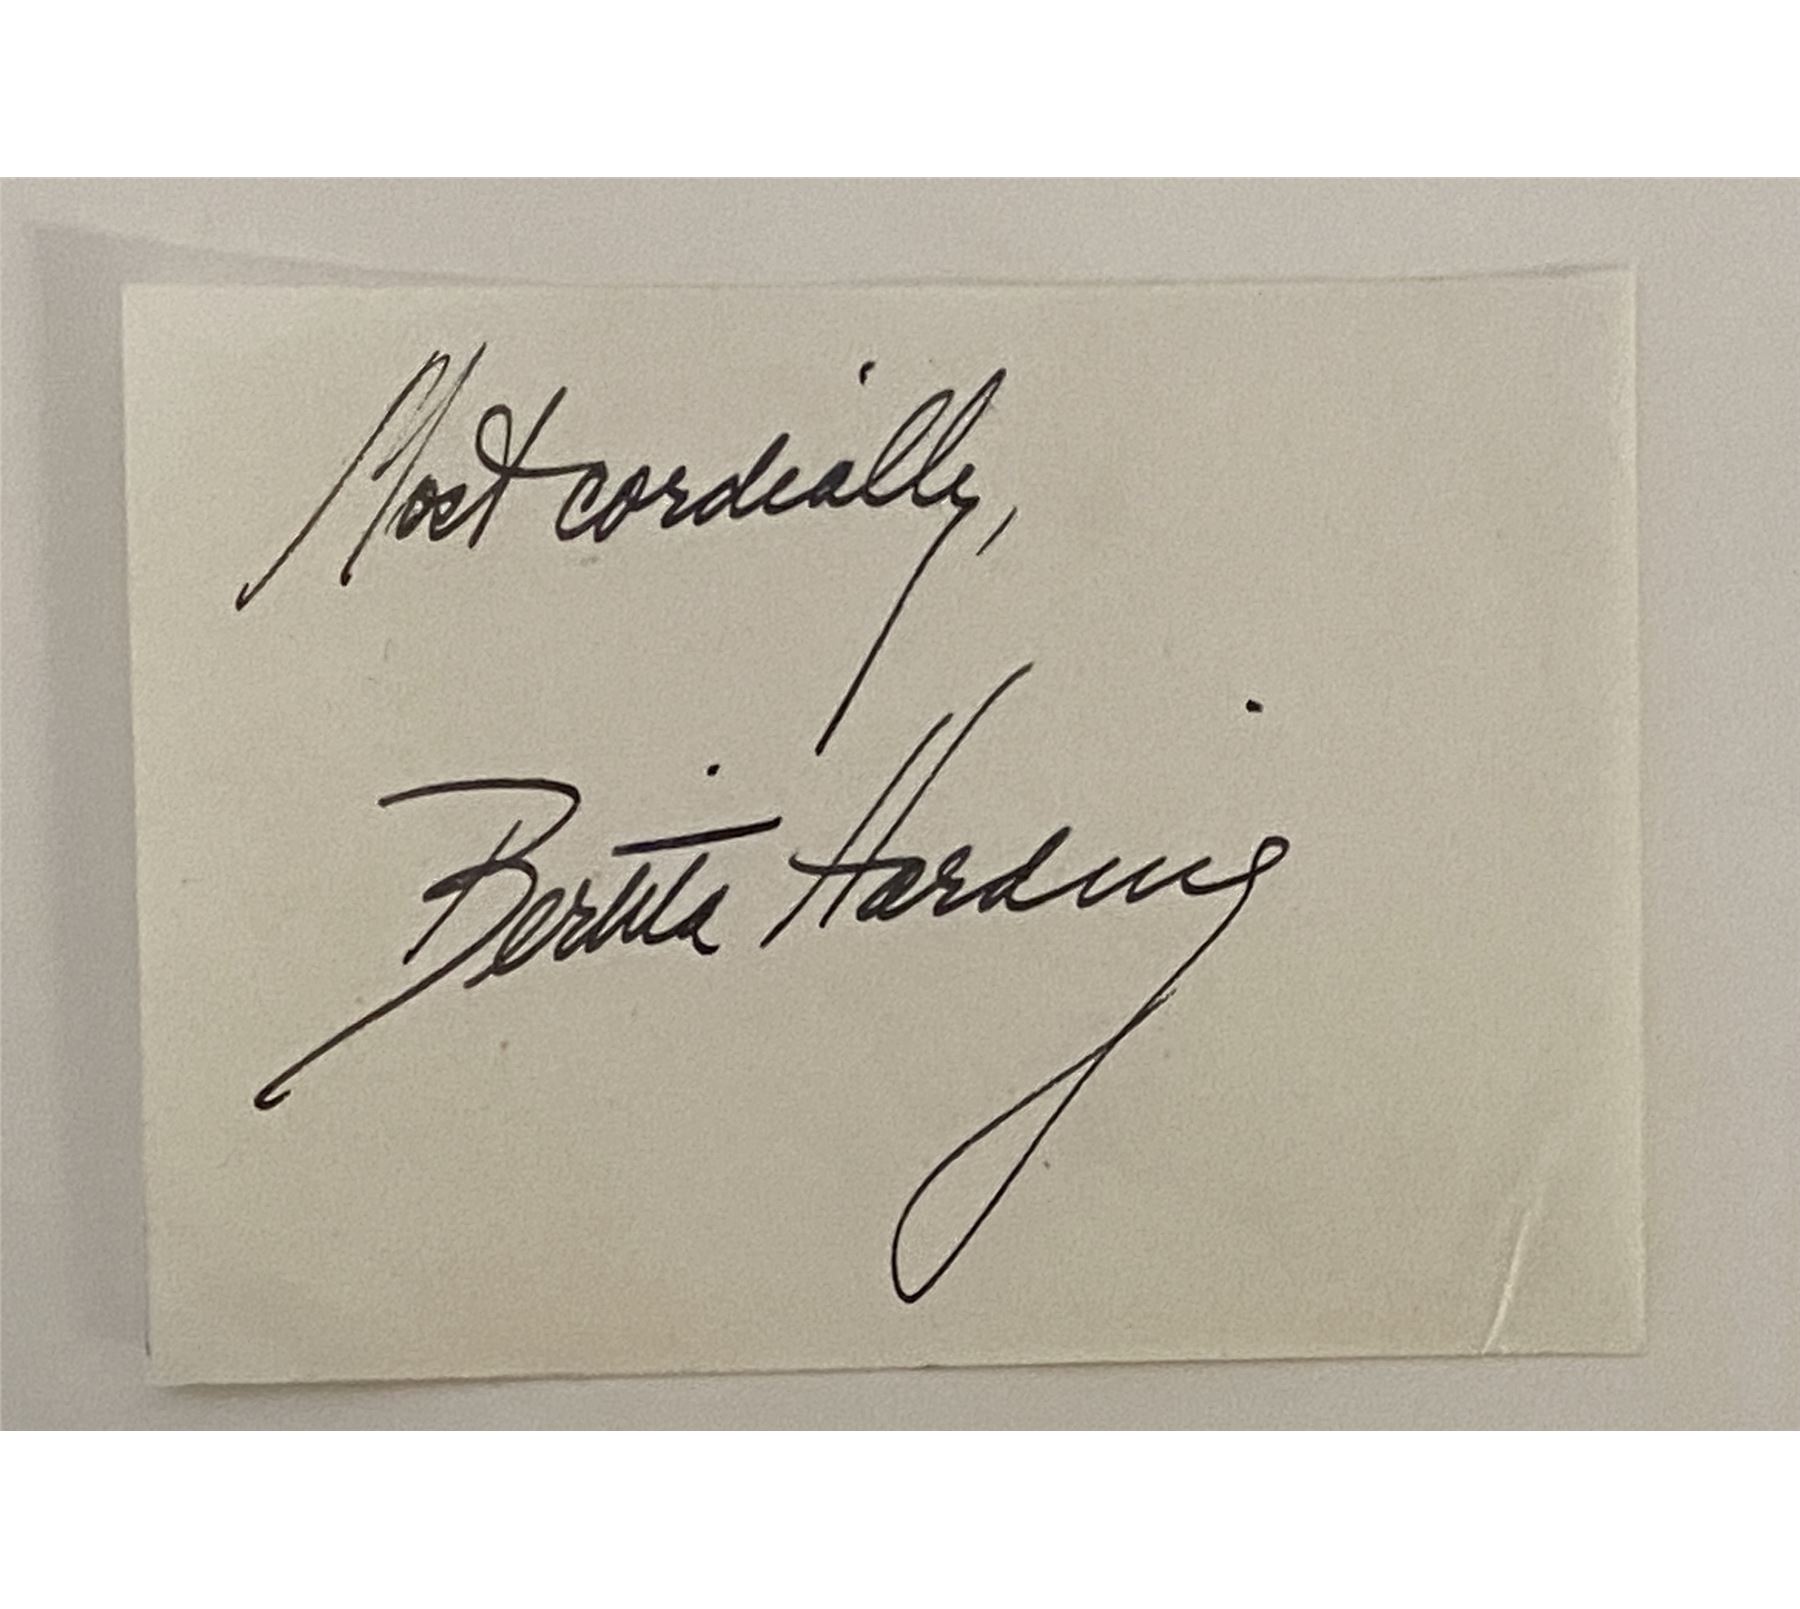 Most cordially,
Bertita Harding